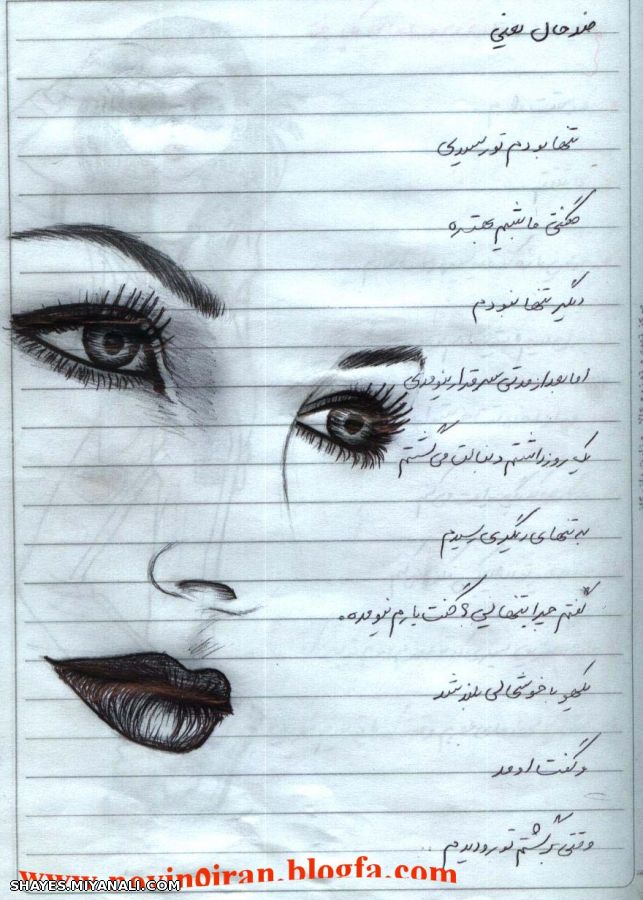 ضد حال یعنی
تنها بودم تو رسیدی
گفتی ما شیم بهتره
دیگر تنها نبودم
اما بعد از مدتی سر قرار نیومدی
یک روز داشتم دنبالت می گشتم
به تنهای دیگری رسیدم
گفتم چرا تنهایی؟ گفت یارم نیومده.
یکهو با خوشحالی بلند شد
و گفت اومد
وقتی برگشتم تو رو دیدم ..
SHAYES.MIYANALI.COM